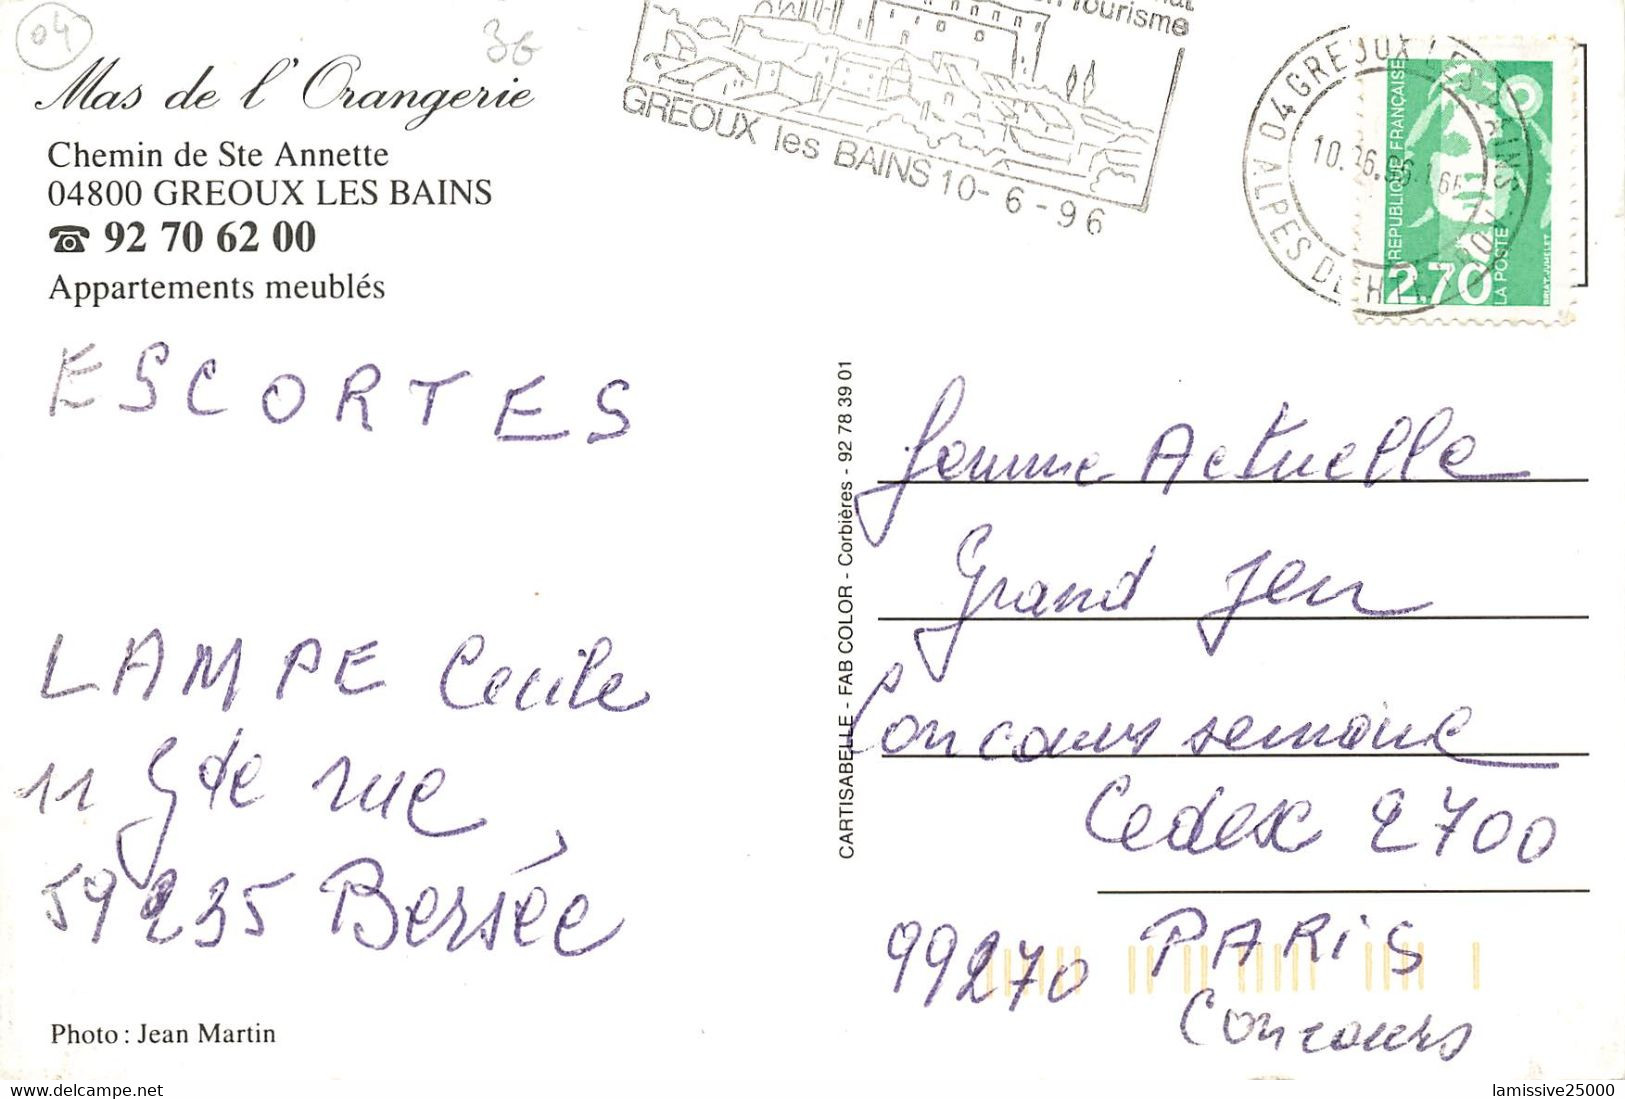 04
36
Mas de l'Orangerie
Chemin de Ste Annette
04800 GREOUX LES BAINS
☎ 92 70 62 00
Appartements meublés
Tourisme
GREOUX les BAINS 10-6-96
04 GREOUX LES BAINS
ALPES DE HTE PROV.
REPUBLIQUE FRANÇAISE
2.70
LA POSTE
BRIAT-JUMELET
ESCORTES
LAMPE Cecile
11 Gde rue
59235 Bersée
Photo : Jean Martin
CARTISABELLE - FAB COLOR - Corbières - 92 78 39 01
Femme Actuelle
Grand Jeu
Concours semaine
Cedex 2700
99270 PARIS
Concours
lamissive25000